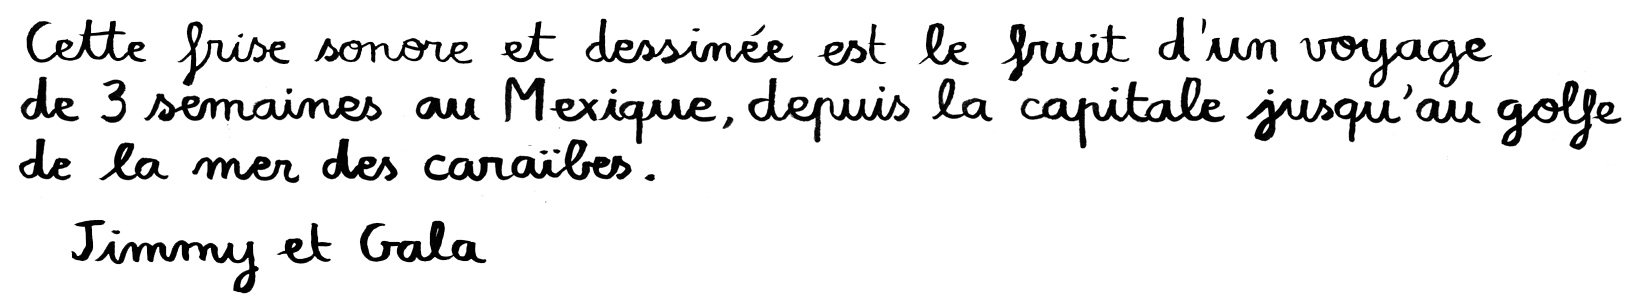 Cette frise sonore et dessinée est le fruit d'un voyage
de 3 semaines au Mexique, depuis la capitale jusqu'au golfe
de la mer des caraïbes.
Jimmy et Gala